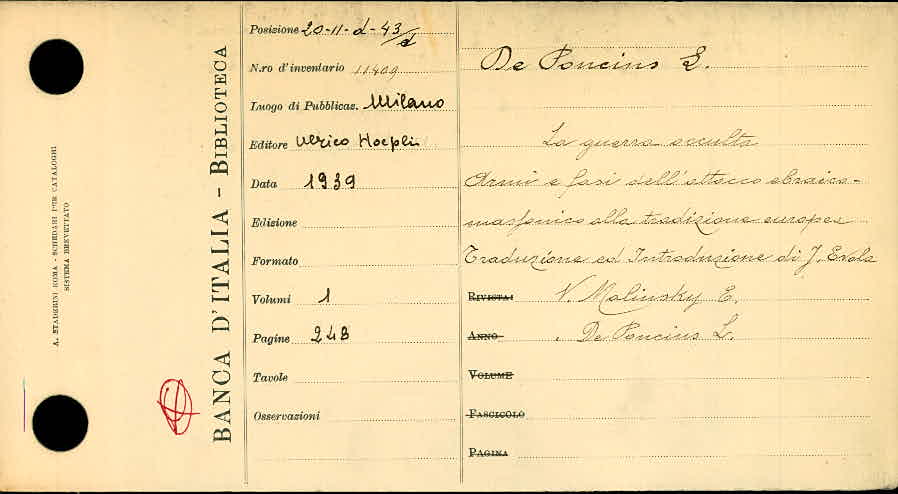 A. STADERINI ROMA - SCHEDARI PER CATALOGHI
SISTEMA BREVETTATO
BANCA D'ITALIA - BIBLIOTECA
Posizione 20-11-d-43/d
N.ro d'inventario 11409
Luogo di Pubblicaz. Milano
Editore Ulrico Hoepli
Data 1939
Edizione
Formato
Volumi 1
Pagine 248
Tavole
Osservazioni
De Poncins L.
La guerra occulta
Armi e fasi dell'attacco ebraico-
massonico alla tradizione europea
Traduzione ed Introduzione di J. Evola
RIVISTA: V. Malinsky E.
ANNO De Poncins L.
VOLUME
FASCICOLO
PAGINA